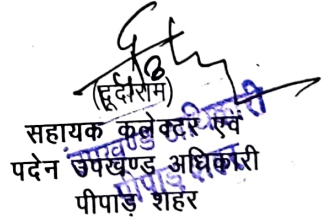 (दूर्दाराम)
सहायक कलेक्टर एवं
पदेन उपखण्ड अधिकारी
पीपाड़ शहर
उपखण्ड अधिकारी
पीपाड़ शहर